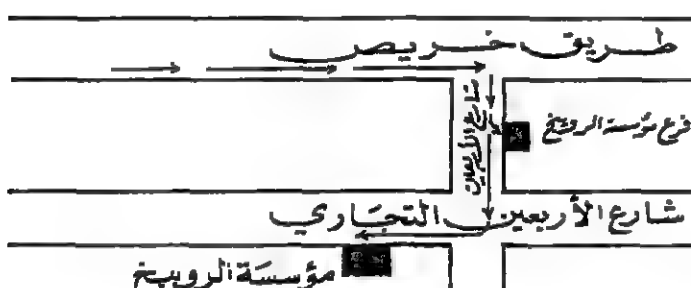 طريق خريص
شارع الأربعين
فرع مؤسسة الرويشخ
شارع الأربعين التجاري
مؤسسة الرويبخ